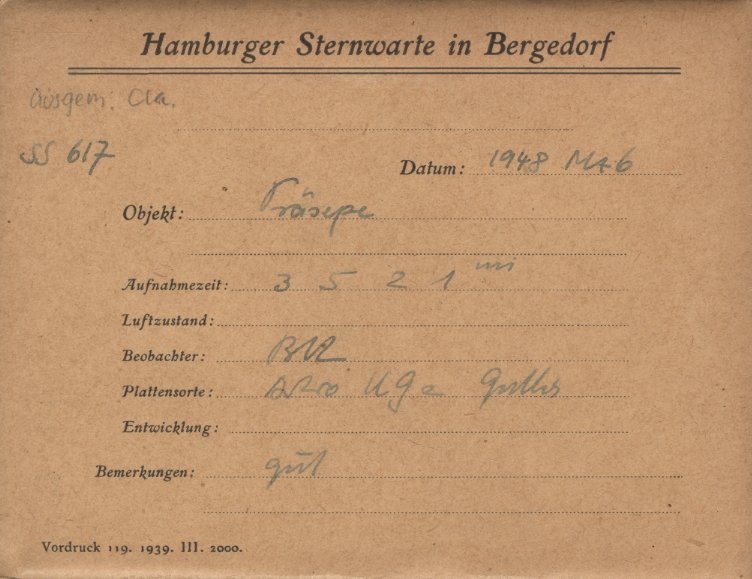 Hamburger Sternwarte in Bergedorf
ausgem. Cla.
SS 617
Datum: 1948 Mz 6
Objekt: Präsepe
Aufnahmezeit: 3 5 2 1 mi
Luftzustand:
Beobachter:
Plattensorte: Astro
Entwicklung:
Bemerkungen: gut
Vordruck 119. 1939. III. 2000.